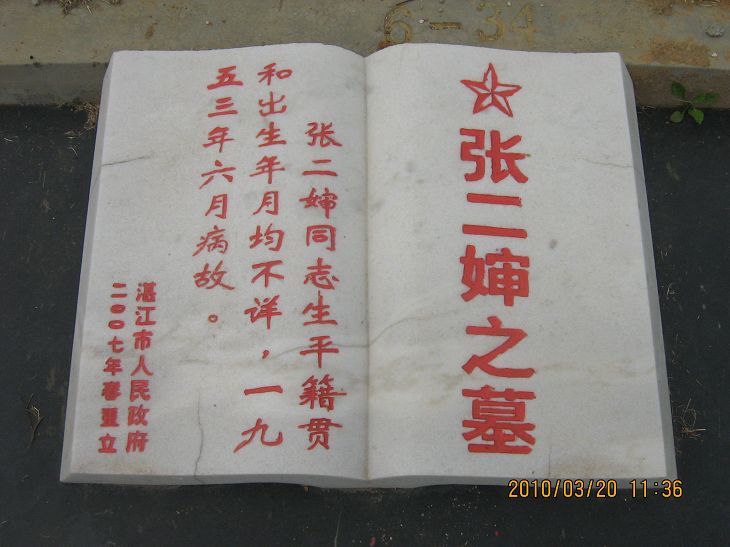 6-34
张二婶之墓
张二婶同志生平籍贯
和出生年月均不详，一九
五三年六月病故。
湛江市人民政府
二〇〇七年春重立
2010/03/20 11:36